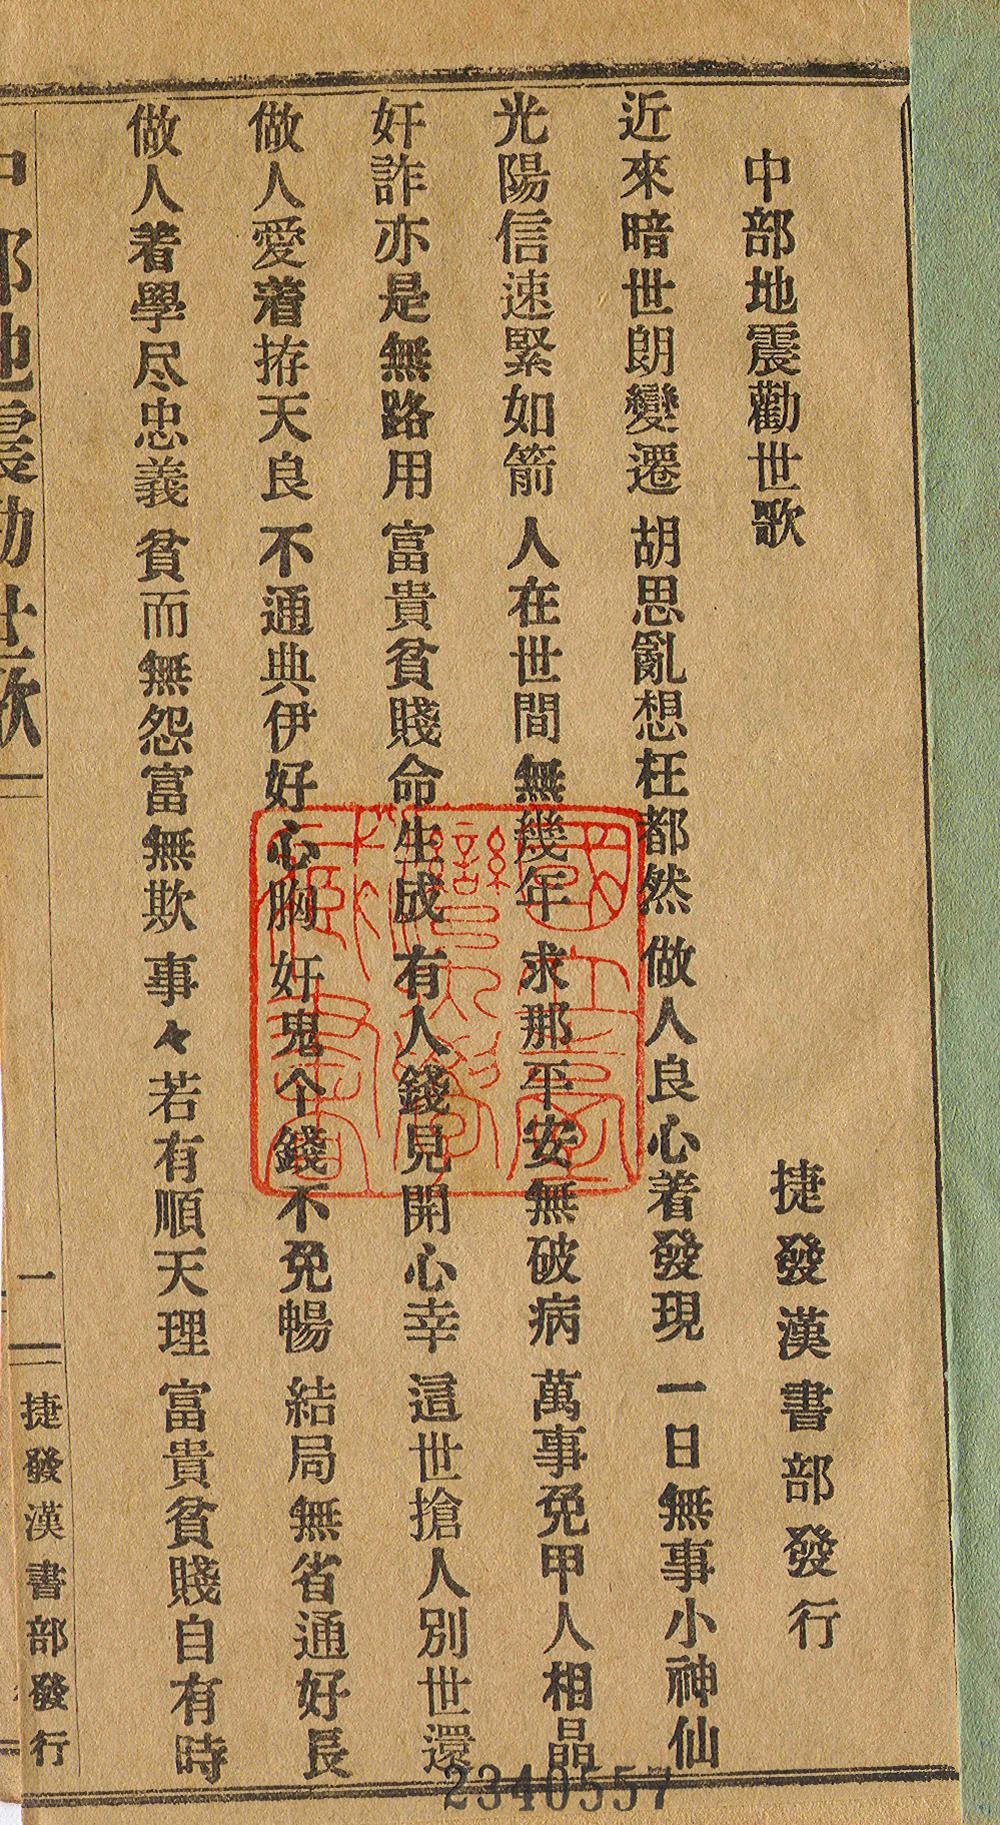 中部地震勸世歌
捷發漢書部發行
近來暗世朗變遷 胡思亂想枉都然 做人良心着發現 一日無事小神仙
光陽信速緊如箭 人在世間無幾年 求那平安無破病 萬事免甲人相晶
奸詐亦是無路用 富貴貧賤命生成 有人錢見開心幸 這世搶人別世還
做人愛着拵天良 不通典伊好心胸 奸鬼个錢不免暢 結局無省通好長
做人着學尽忠義 貧而無怨富無欺 事々若有順天理 富貴貧賤自有時
中部地震勸世歌
一
捷發漢書部發行
國立臺灣大學圖書
2340557